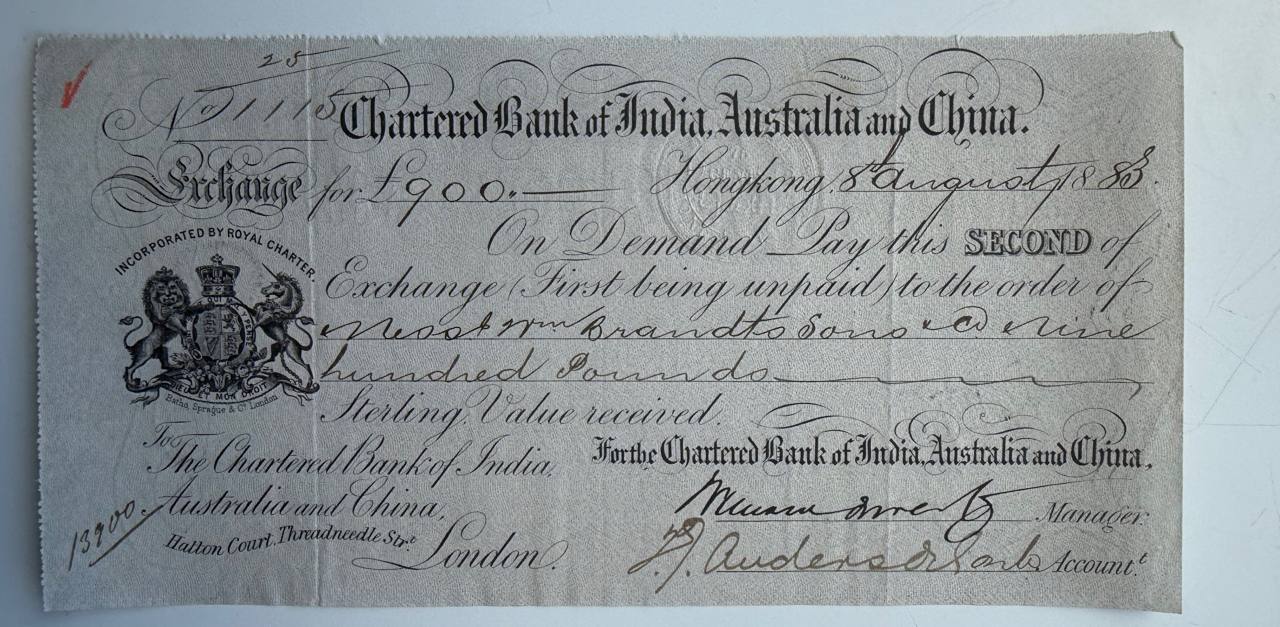 25
No 11/115 Chartered Bank of India, Australia and China.
Exchange for £900.— Hongkong, 8th August, 1883.
INCORPORATED BY ROYAL CHARTER.
On Demand Pay this SECOND of
Exchange (First being unpaid) to the order of
Messrs Wm Brandts Sons & Co Nine
hundred Pounds
DIEU ET MON DROIT
Batho, Sprague & Co. London
Sterling, Value received.
To
The Chartered Bank of India,
Australia and China,
Hatton Court, Threadneedle Strt.
London.
13900.
For the Chartered Bank of India, Australia and China,
Manager.
Accountt.